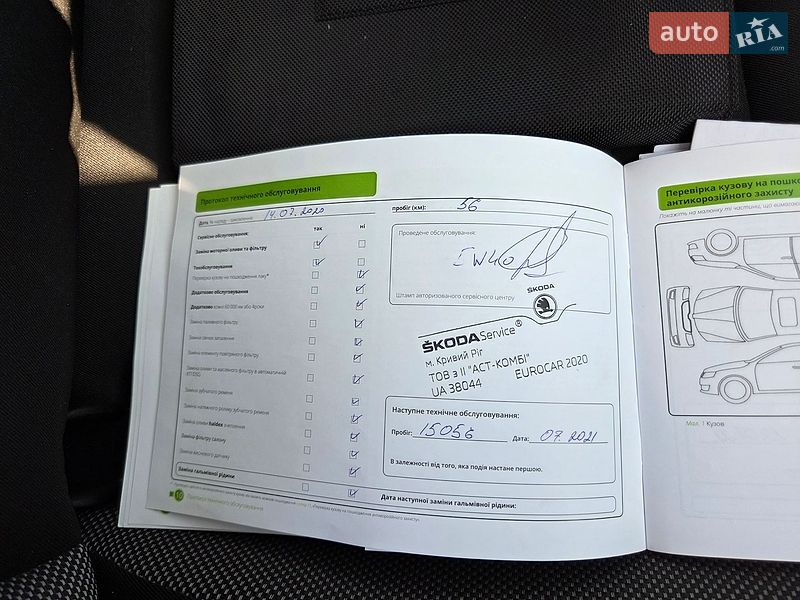 auto RIA .com
Протокол технічного обслуговування
Дата 14.07.2020
пробіг (км): 56
так ні
Сервісне обслуговування:
Заміна моторної оливи та фільтру
Техобслуговування
Перевірка кузову на пошкодження лаку*
Додаткове обслуговування
Заміна паливного фільтру
Заміна свічок запалення
Заміна елементу повітряного фільтру
Заміна оливи та масляного фільтру в автоматичній
Заміна зубчатого ременя
Заміна натяжного ролику зубчатого ременя
Заміна оливи Haldex зчеплення
Заміна фільтру салону
Заміна гальмівної рідини
Проведене обслуговування:
Штамп авторизованого сервісного центру
ŠKODA
ŠKODA Service®
м. Кривий Ріг
ТОВ з ІІ "АСТ-КОМБІ"
UA 38044 EUROCAR 2020
Наступне технічне обслуговування:
Пробіг: 15056 Дата: 07.2021
В залежності від того, яка подія настане першою.
Дата наступної заміни гальмівної рідини:
16 Протокол технічного обслуговування
Перевірка кузову на
антикорозійного захисту
Покажіть на малюнку ті частини, що
Мал. 1 Кузов